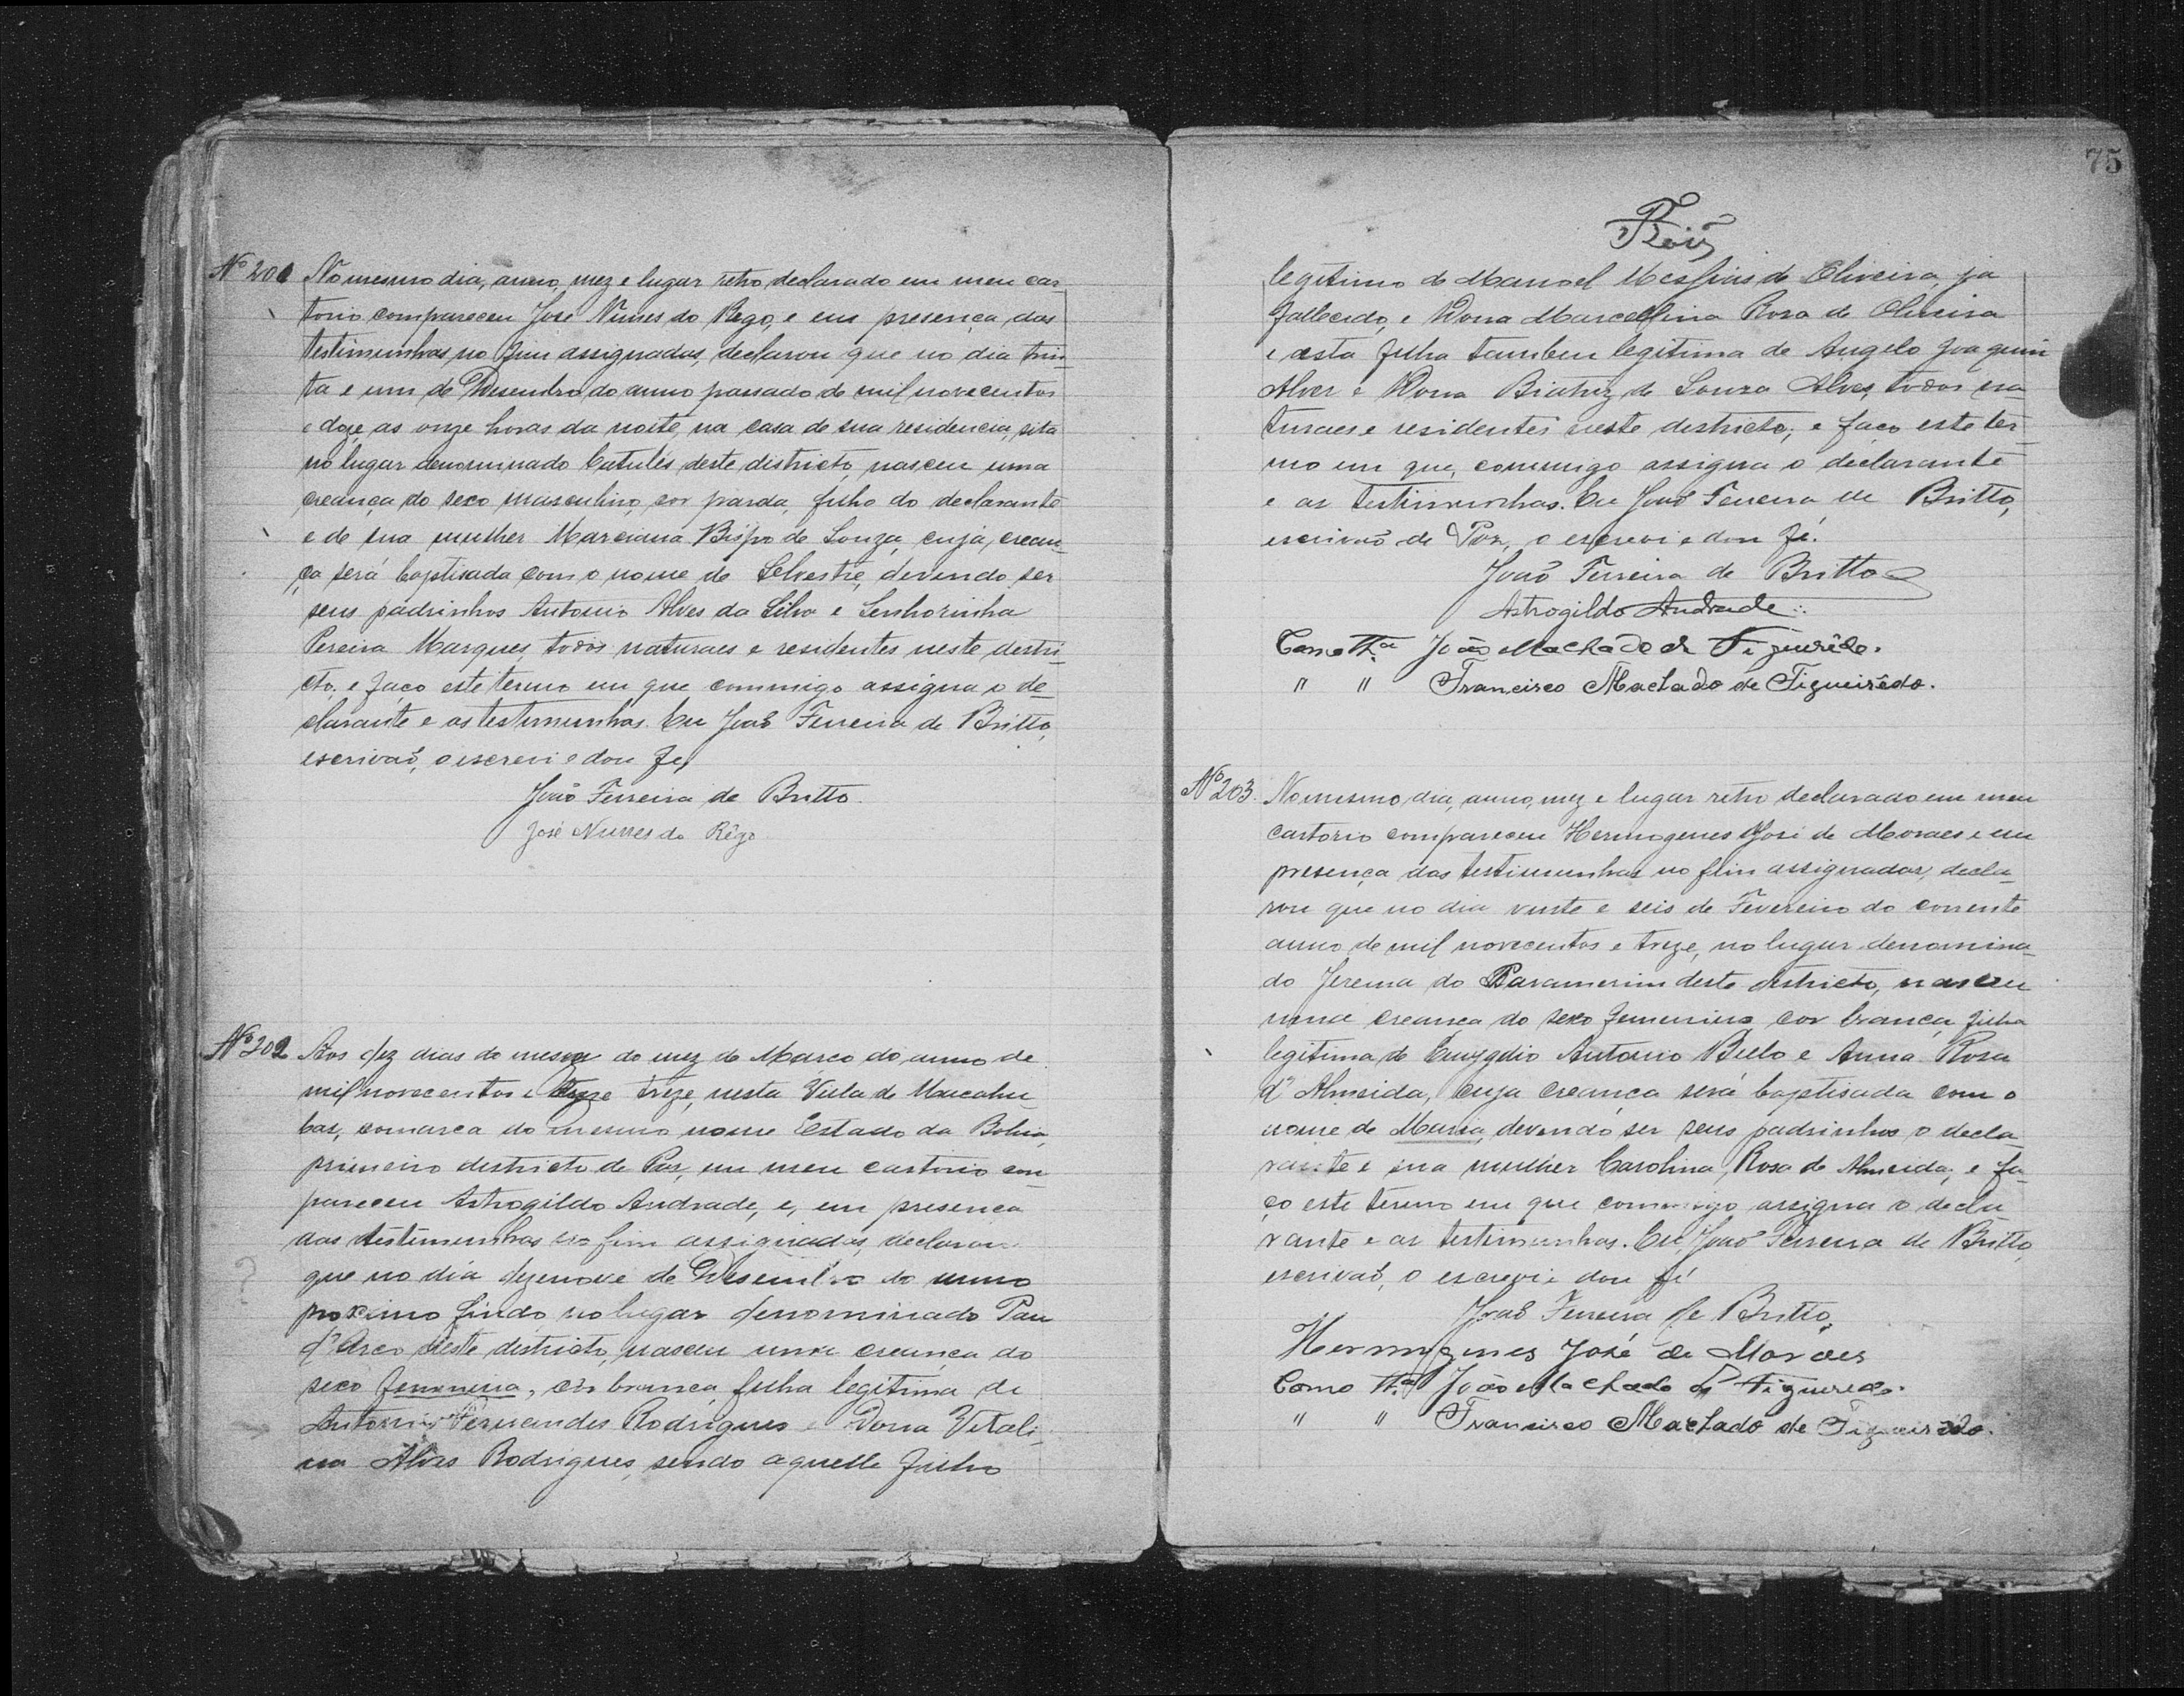 Nº 201 No mesmo dia, anno, mez e lugar retro declarado em meu car
torio compareceu José Nunes do Rego, e em presença das
testimunhas no fim assignadas, declarou que no dia trin-
ta e um de Desembro do anno passado de mil novecentos
e doze, as onze horas da noite, na casa de sua residencia, sita
no lugar denominado Cutulés deste districto, nasceu uma
creança do sexo masculino, cor parda, filho do declarante
e de sua mulher Marciana Bispo de Souza, cuja, crean-
ça será baptisada com o nome de Selvestre, devendo ser
seus padrinhos Antonio Alves da Silva e Senhorinha
Pereira Marques, todos naturaes e residentes neste destri-
cto. e faço este termo em que commigo assigna o de-
clarante e as testimunhas. Eu João Ferreira de Britto,
escrivaõ, o escrevi e dou fé,
João Ferreira de Britto.
José Nunes do Rêgo.
Nº 202 Aos dez dias do mesm do mez de Março do anno de
mil novecentos e treze, nesta Villa de Macahu-
bas, comarca do mesmo nome Estado da Bahia,
primeiro districto de Paz, em meu cartorio com
pareceu Astrogildo Andrade, e, em presença
das testimunhas no fim assignadas, declarou
que no dia dezenove de Desembro do anno
proximo findo, no lugar denominado Pau
d'Arco deste districto, nasceu uma creança do
sexo femenino, côr branca, filha legitima de
Antonio Fernandes Rodrigues e Dona Vitali-
na Alves Rodrigues, sendo aquelle filho
75
legitimo de Manoel Messias de Oliveira, ja
fallecido, e Dona Marcellina Rosa de Oliveira
e esta filha tambem legitima de Angelo Joaquim
Alves e Dona Biatriz de Souza Alves, todos na
turaes e residentes neste destricto; e faço este ter-
mo em que, commigo assigna o declarante
e as testimunhas. Eu João Ferreira de Britto,
escrivaõ de Paz, o escrevi e dou fé.
João Ferreira de Britto
Astrogildo Andrade
Como tta João Machado de Figueirêdo.
" " Francisco Machado de Figueirêdo.
Nº 203. No mesmo dia, anno, mez e lugar retro declarado em meu
cartorio compareceu Hermogenes José de Moraes e em
presença das testimunhas no fim assignadas, decla-
rou que no dia vinte e seis de Fevereiro do corrente
anno de mil novecentos e treze, no lugar denomina-
do Jerema do Paramerim deste destricto, nasceu
uma creança do sexo femenino, cor branca, filha
legitima de Emygdio Antonio Bello e Anna Rosa
d'Almeida, cuja creança será baptisada com o
nome de Maria, devendo ser seus padrinhos o decla
rante e sua mulher Carolina Rosa de Almeida; e fa-
ço este termo em que commigo assigna o decla
rante e as testimunhas. Eu, João Ferreira de Britto,
escrivaõ, o escrevi e dou fé
João Ferreira de Britto.
Hermogenes José de Moraes
Como tta João Machado de Figueredo.
" " Francisco Machado de Figueirêdo.